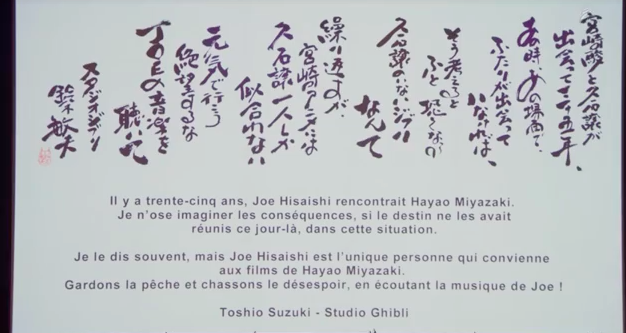 宮崎駿と久石譲が
出会って三十五年、
あの時、あの場面で、
ふたりが出会って
いなければ、
そう考えると
ふと恐くなる
久石譲のいないジブリ
なんて
繰り返すが、
宮崎アニメには
久石譲一人しか
似合わない
元気で行こう
絶望するな
JOEの音楽を
聴いて
スタジオジブリ
鈴木敏夫
Il y a trente-cinq ans, Joe Hisaishi rencontrait Hayao Miyazaki.
Je n'ose imaginer les conséquences, si le destin ne les avait
réunis ce jour-là, dans cette situation.
Je le dis souvent, mais Joe Hisaishi est l'unique personne qui convienne
aux films de Hayao Miyazaki.
Gardons la pêche et chassons le désespoir, en écoutant la musique de Joe !
Toshio Suzuki - Studio Ghibli